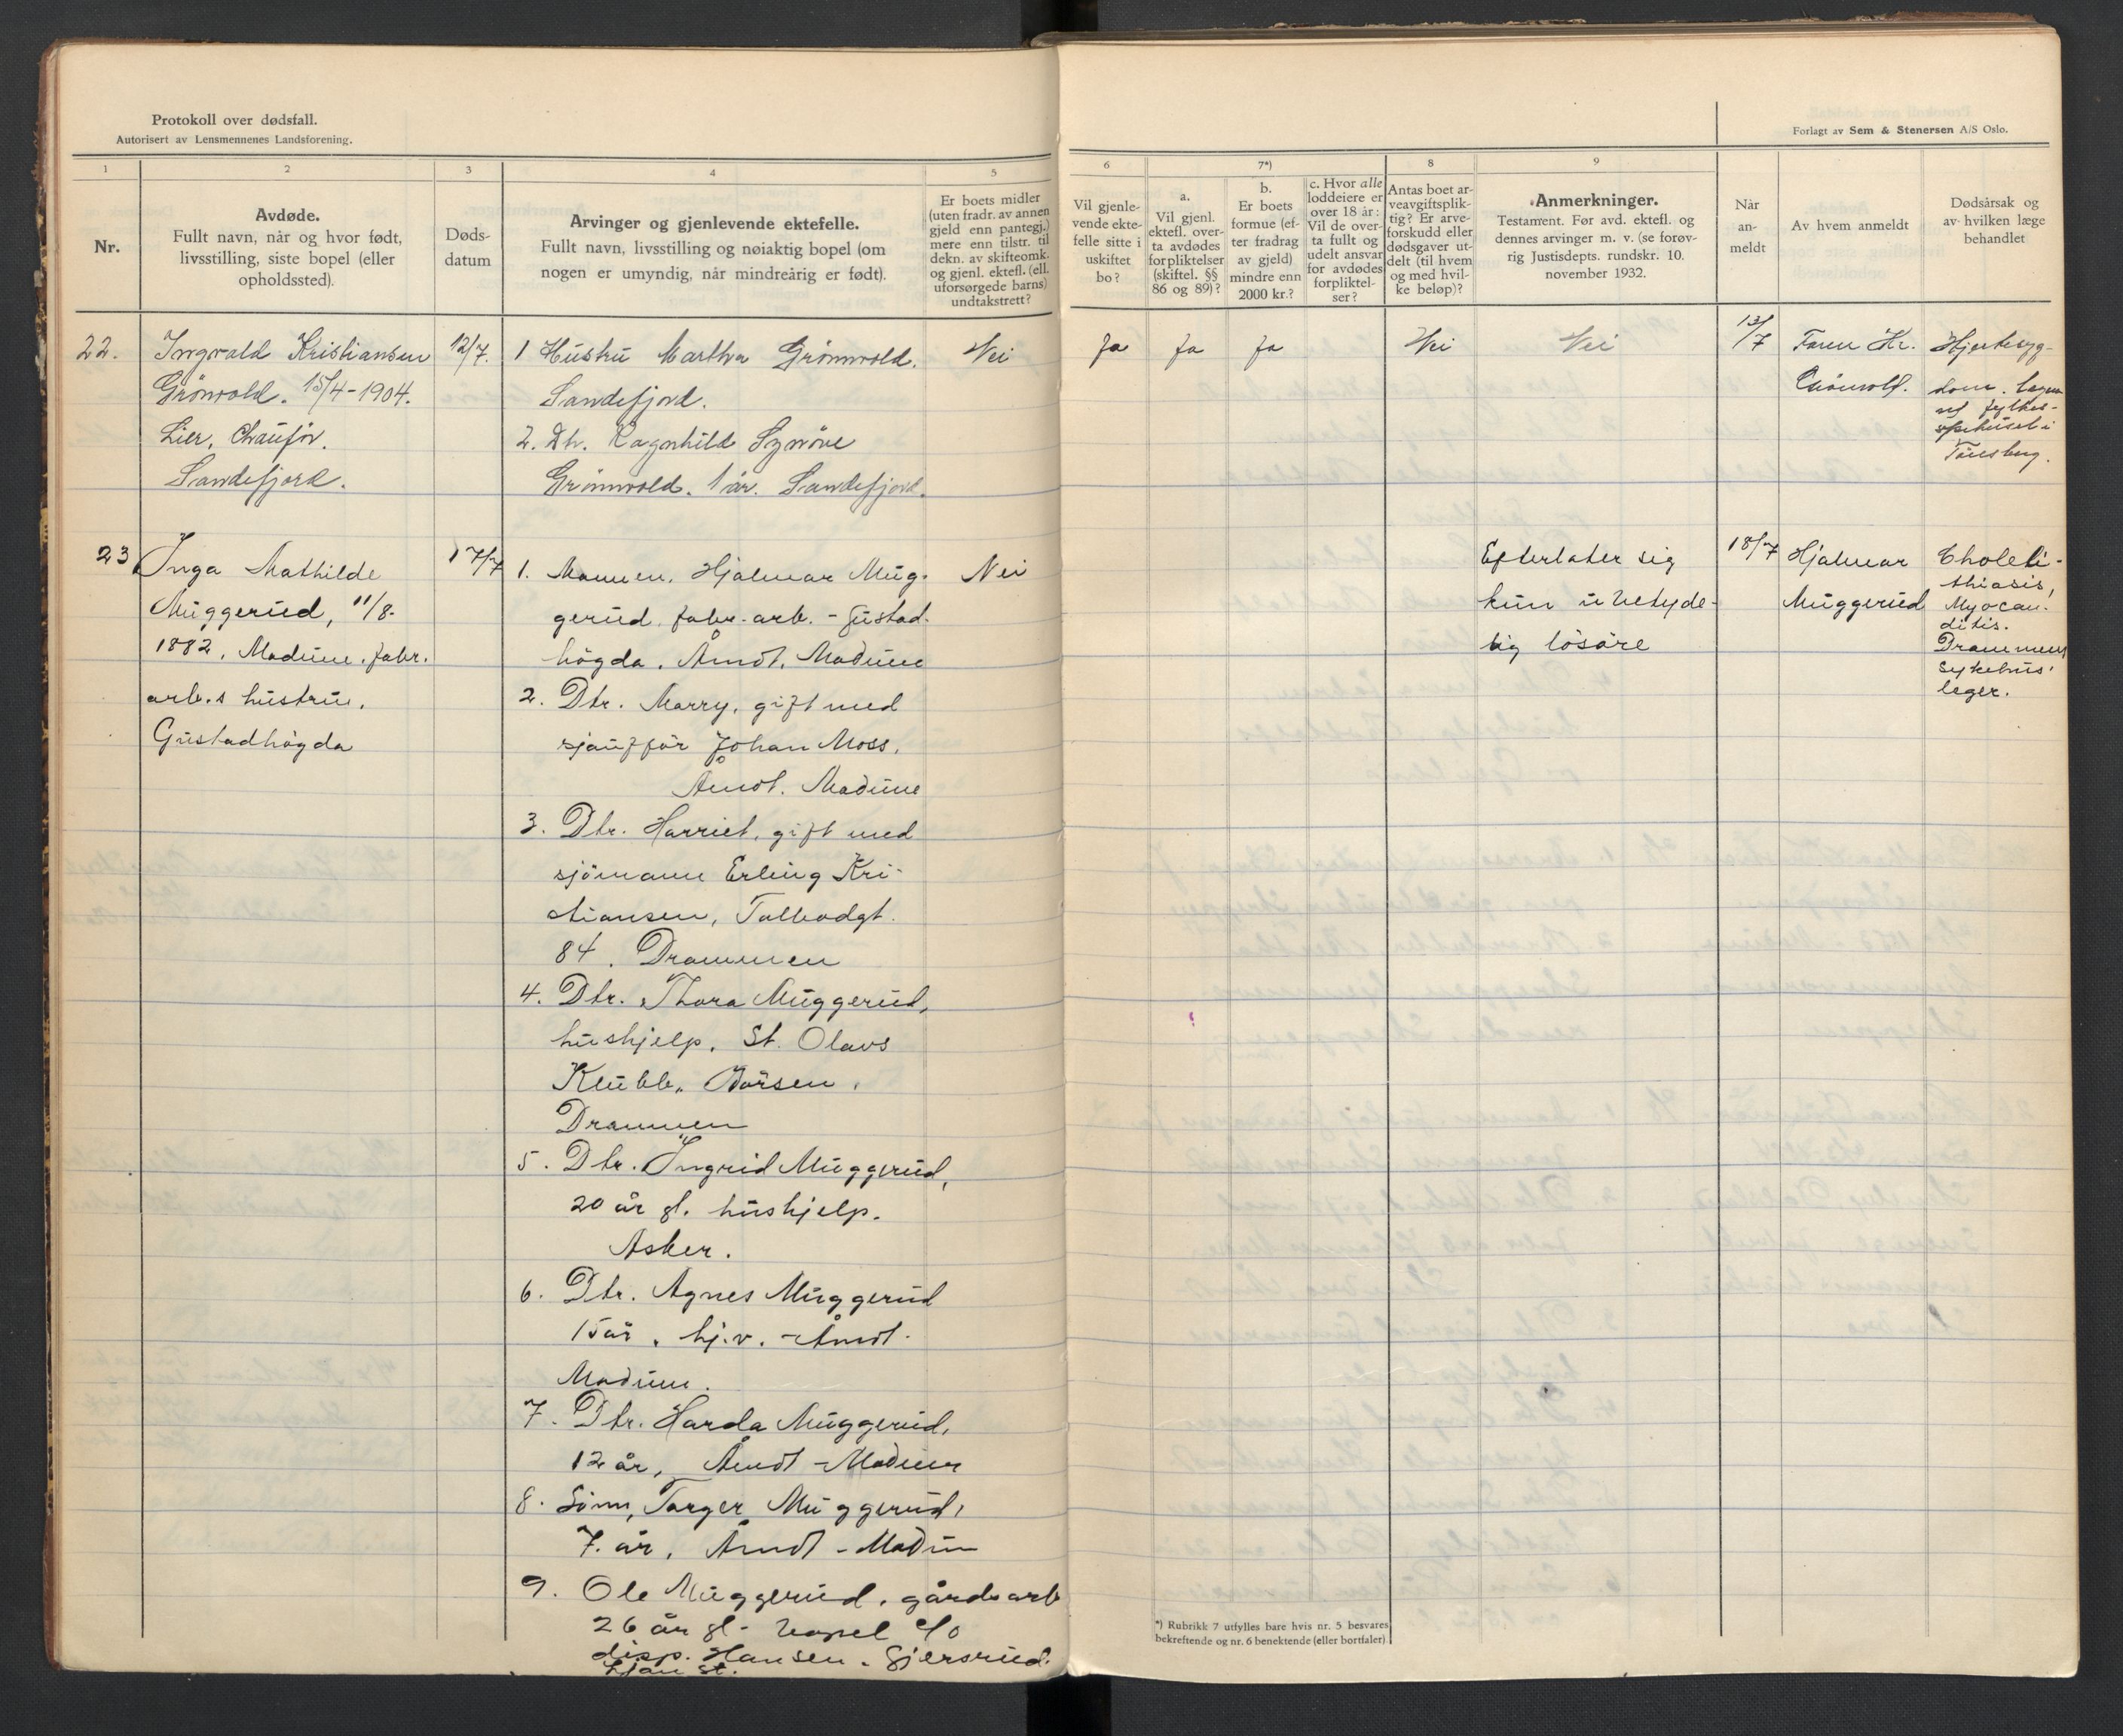 Protokoll over dødsfall.
Autorisert av Lensmennenes Landsforening.
Forlagt av Sem & Stenersen A/S Oslo.
1
2
3
4
5
6
7*)
8
9
Nr.
Avdøde.
Fullt navn, når og hvor født,
livsstilling, siste bopel (eller
opholdssted).
Døds-
datum
Arvinger og gjenlevende ektefelle.
Fullt navn, livsstilling og nøiaktig bopel (om
nogen er umyndig, når mindreårig er født).
Er boets midler
(uten fradr. av annen
gjeld enn pantegj.)
mere enn tilstr. til
dekn. av skifteomk.
og gjenl. ektefl. (ell.
uforsørgede barns)
undtakstrett?
Vil gjenle-
vende ekte-
felle sitte i
uskiftet
bo?
a.
Vil gjenl.
ektefl. over-
ta avdødes
forpliktelser
(skiftel. §§
86 og 89)?
b.
Er boets
formue (ef-
ter fradrag
av gjeld)
mindre enn
2000 kr.?
c. Hvor alle
loddeiere er
over 18 år:
Vil de over-
ta fullt og
udelt ansvar
for avdødes
forpliktel-
ser?
Antas boet ar-
veavgiftsplik-
tig? Er arve-
forskudd eller
dødsgaver ut-
delt (til hvem
og med hvil-
ke beløp)?
Anmerkninger.
Testament. Før avd. ektefl. og
dennes arvinger m. v. (se forøv-
rig Justisdepts. rundskr. 10.
november 1932.
Når
an-
meldt
Av hvem anmeldt
Dødsårsak og
av hvilken læge
behandlet
22.
Ingvald Kristiansen
Grönvold. 15/4-1904.
Lier. Chauför.
Sandefjord.
12/7.
1 Hustru Martha Grönnvold.
Sandefjord.
2. Dtr. Ragnhild Synöve
Grönnvold. 1 år. Sandefjord.
Nei
Ja
Ja
Ja
Nei
Nei
13/7
Faren Kr.
Grönvold.
Hjertesyg-
dom.
fylkes-
sykehuset i
Tönsberg.
23
Inga Mathilde
Muggerud, 11/8-
1882, Modum. fabr.
arb.s hustru,
Gustadhögda
17/7
1. Mannen, Hjalmar Mug-
gerud. fabr. arb. - Gustad-
högda. Åmot, Modum
2. Dtr. Marry, gift med
sjauffør Johan Moss,
Åmot. Modum
3. Dtr. Harriet, gift med
sjömann Erling Kri-
stiansen, Tollbodgt.
84. Drammen
4. Dtr. Thora Muggerud,
hushjelp. St. Olavs
Klubb, Börsen,
Drammen
5. Dtr. Ingrid Muggerud,
20 år gl. hushjelp.
Asker.
6. Dtr. Agnes Muggerud
15 år. hj.v. - Åmot.
Modum.
7. Dtr. Harda Muggerud,
12 år, Åmot - Modum
8. Sönn, Torger Muggerud,
7. år, Åmot - Modum
9. Ole Muggerud. gårdsarb
26 år gl - bopel c/o
disp. Hansen. Gjersrud.
Ljan st.
Nei
Efterlater sig
kun ubetyde-
lig lösöre
18/7
Hjalmar
Muggerud
Choleli-
thiasis,
Myocar-
ditis.
Drammens
sykehus'
leger.
*) Rubrikk 7 utfylles bare hvis nr. 5 besvares
bekreftende og nr. 6 benektende (eller bortfaler)